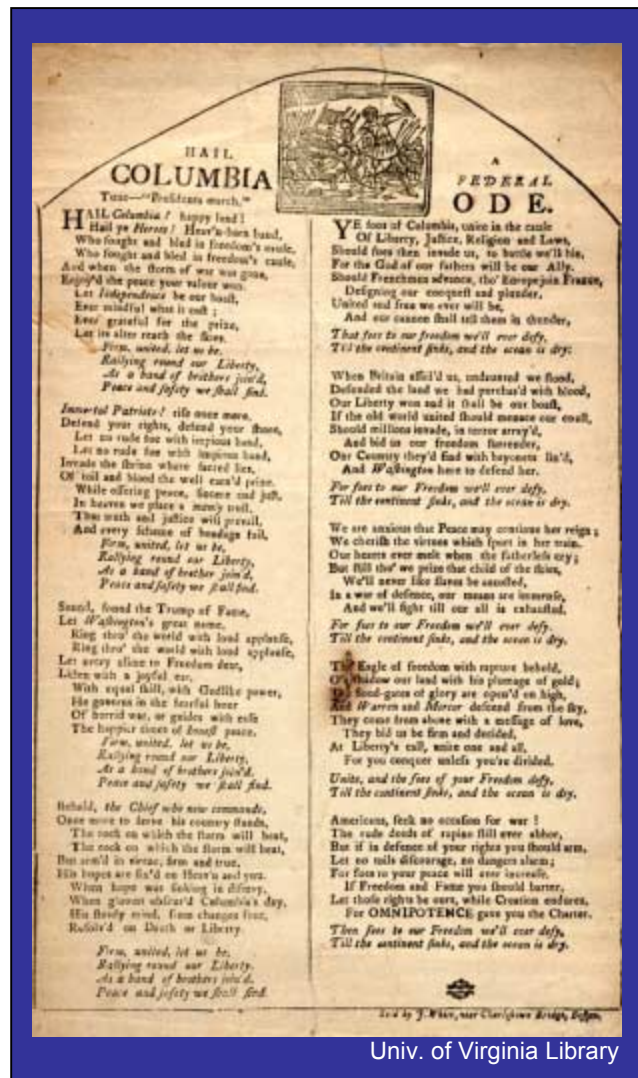 HAIL
COLUMBIA
Tune—"Presidents march."
HAIL Columbia! happy land!
Hail ye Heroes! Heav'n-born band,
Who fought and bled in freedom's cause,
Who fought and bled in freedom's cause,
And when the storm of war was gone,
Enjoy'd the peace your valour won.
Let Independence be our boast,
Ever mindful what it cost;
Ever grateful for the prize,
Let its altar reach the skies.
Firm, united, let us be,
Rallying round our Liberty,
As a band of brothers join'd,
Peace and safety we shall find.
Immortal Patriots! rise once more,
Defend your rights, defend your shore,
Let no rude foe with impious hand,
Let no rude foe with impious hand,
Invade the shrine where sacred lies,
Of toil and blood the well earn'd prize.
While offering peace, sincere and just,
In heaven we place a manly trust,
That truth and justice will prevail,
And every scheme of bondage fail,
Firm, united, let us be,
Rallying round our Liberty,
As a band of brother join'd,
Peace and safety we shall find.
Sound, sound the Trump of Fame,
Let Washington's great name.
Ring thro' the world with loud applause,
Ring thro' the world with loud applause,
Let every clime to Freedom dear,
Listen with a joyful ear.
With equal skill, with Godlike power,
He governs in the fearful hour
Of horrid war, or guides with ease
The happier times of honest peace.
Firm, united, let us be,
Rallying round our Liberty,
As a band of brothers join'd.
Peace and safety we shall find.
Behold, the Chief who now commands,
Once more to serve his country stands,
The rock on which the storm will beat,
The rock on which the storm will beat,
But arm'd in virtue, firm and true,
His hopes are fix'd on Heav'n and you.
When hope was sinking in dismay,
When glooms obscur'd Columbia's day,
His steady mind, from changes free,
Resolv'd on Death or Liberty
Firm, united, let us be,
Rallying round our Liberty.
As a band of brothers join'd.
Peace and safety we shall find.
A
FEDERAL
ODE.
YE sons of Columbia, unite in the cause
Of Liberty, Justice, Religion and Laws,
Should foes then invade us, to battle we'll hie,
For the God of our fathers will be our Ally.
Should Frenchmen advance, tho' Europe join France,
Designing our conquest and plunder,
United and free we ever will be,
And our cannon shall tell them in thunder,
That foes to our freedom we'll ever defy,
Till the continent sinks, and the ocean is dry.
When Britain assail'd us, undaunted we stood,
Defended the land we had purchas'd with blood,
Our Liberty won and it shall be our boast,
If the old world united should menace our coast,
Should millions invade, in terror array'd,
And bid us our freedom surrender,
Our Country they'd find with bayonets lin'd,
And Washington here to defend her.
For foes to our Freedom we'll ever defy,
Till the continent sinks, and the ocean is dry.
We are anxious that Peace may continue her reign;
We cherish the virtues which sport in her train.
Our hearts ever melt when the fatherless cry;
But still tho' we prize that child of the skies,
We'll never like slaves be accosted,
In a war of defence, our means are immense,
And we'll fight till our all is exhausted.
For foes to our Freedom we'll ever defy,
Till the continent sinks, and the ocean is dry.
Eagle of freedom with rapture behold,
shadow our land with his plumage of gold;
flood-gates of glory are open'd on high,
And Warren and Mercer defend from the sky,
They come from above with a message of love,
They bid us be firm and decided,
At Liberty's call, unite one and all,
For you conquer unless you're divided.
Unite, and the foes of your Freedom defy,
Till the continent sinks, and the ocean is dry.
Americans, seek no occasion for war!
The rude deeds of rapine still ever abhor,
But if in defence of your rights you should arm,
Let no toils discourage, no dangers alarm;
For foes to your peace will ever increase.
If Freedom and Fame you should barter,
Let those rights be ours, while Creation endures,
For OMNIPOTENCE gave you the Charter.
Then foes to our Freedom we'll ever defy,
Till the continent sinks, and the ocean is dry.
Sold by J. White, near Charlestown Bridge, Boston.
Univ. of Virginia Library